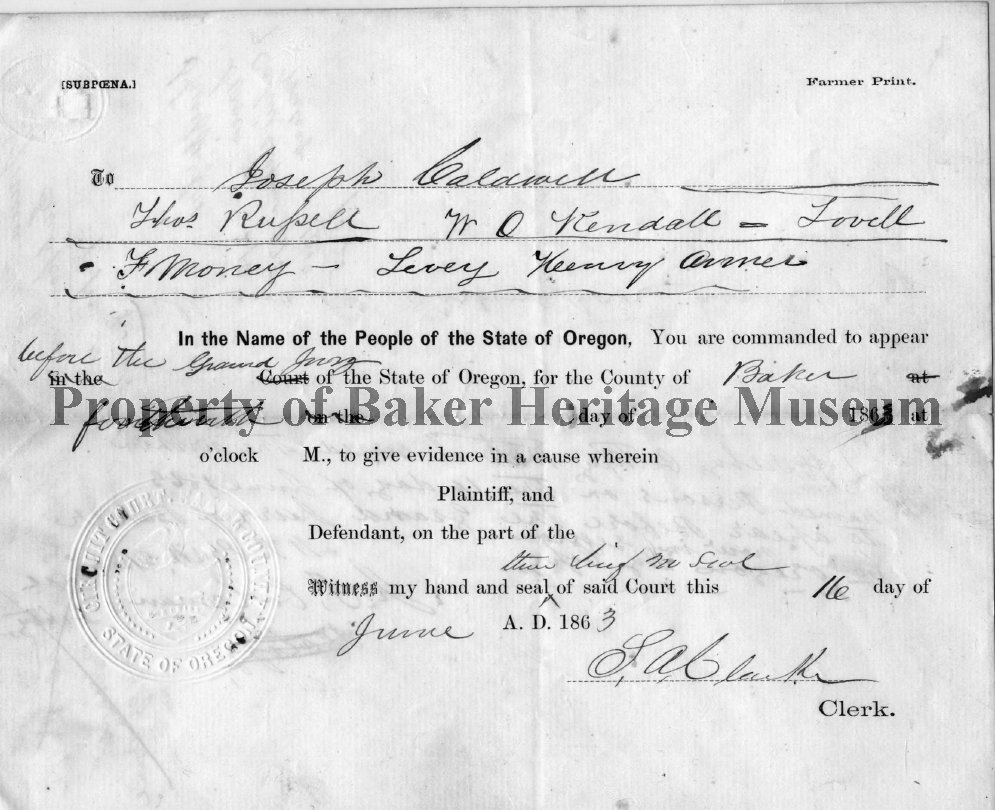 [SUBPŒNA.] Farmer Print.
To Joseph Caldwell
Thos Russell W O Kendall = Lovell
F Money – Levey Henry
In the Name of the People of the State of Oregon, You are commanded to appear
before the Grand Jury
in the Court of the State of Oregon, for the County of Baker at
forthwith on the day of 1863 at
Property of Baker Heritage Museum
o'clock M., to give evidence in a cause wherein
Plaintiff, and
Defendant, on the part of the
Witness my hand and seal of said Court this 16 day of
June A. D. 1863
S. A. Clarke
Clerk.
CIRCUIT COURT, COUNTY,
STATE OF OREGON